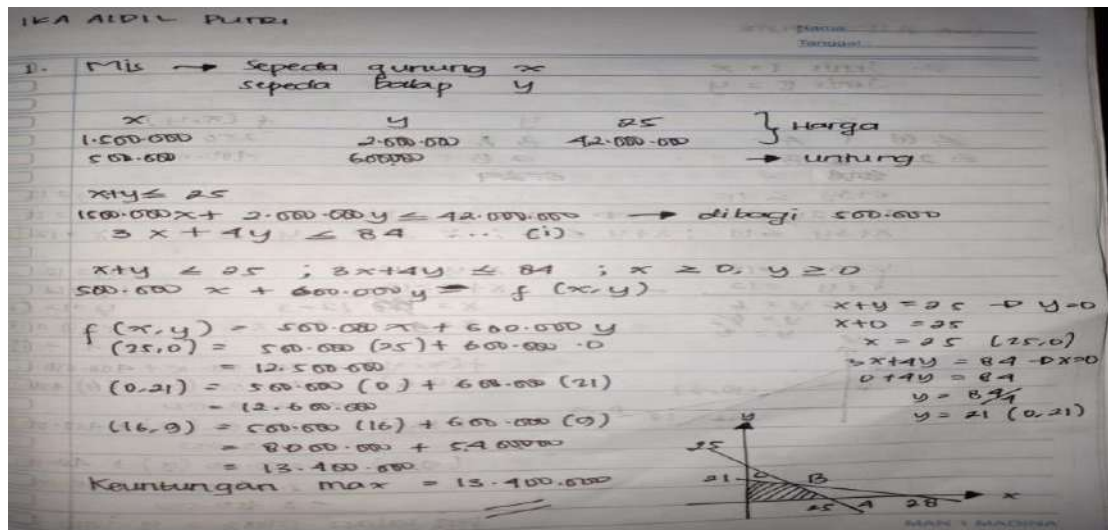 IKA ALDIL PUTRI
Nama
Tanggal
1. Mis → Sepeda gunung x
sepeda balap y
x y 25 } Harga
1.500.000 2.000.000 42.000.000
500.000 600000 → untung
x+y ≤ 25
1500.000x + 2.000.000 y ≤ 42.000.000 → dibagi 500.000
3x + 4y ≤ 84 ... (i)
x+y ≤ 25 ; 3x+4y ≤ 84 ; x ≥ 0, y ≥ 0
500.000 x + 600.000 y = f (x,y)
f (x,y) = 500.000 x + 600.000 y
(25,0) = 500.000 (25) + 600.000 .0
= 12.500.000
(0,21) = 500.000 (0) + 600.000 (21)
= 12.600.000
(16,9) = 500.000 (16) + 600.000 (9)
= 8000.000 + 5.400000
= 13.400.000
Keuntungan max = 13.400.000
x+y = 25 → y=0
x+0 = 25
x = 25 (25,0)
3x+4y = 84 → x=0
0+4y = 84
y = 84/4
y = 21 (0,21)
y
25
21 B
25 A 28 x
MAN 1 MADINA